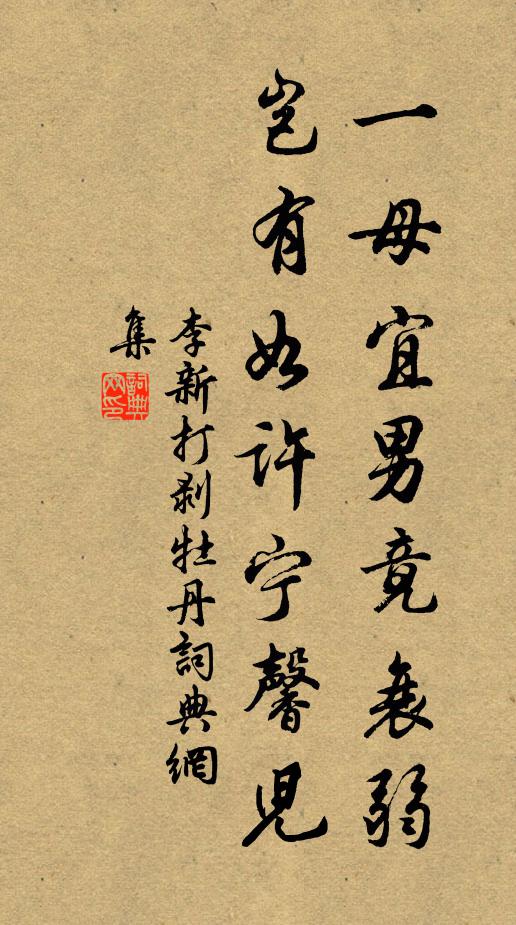 一毋宜男竟衰弱
岂有如许宁馨児
李新打剥牡丹詞典網
集
詞典
网印